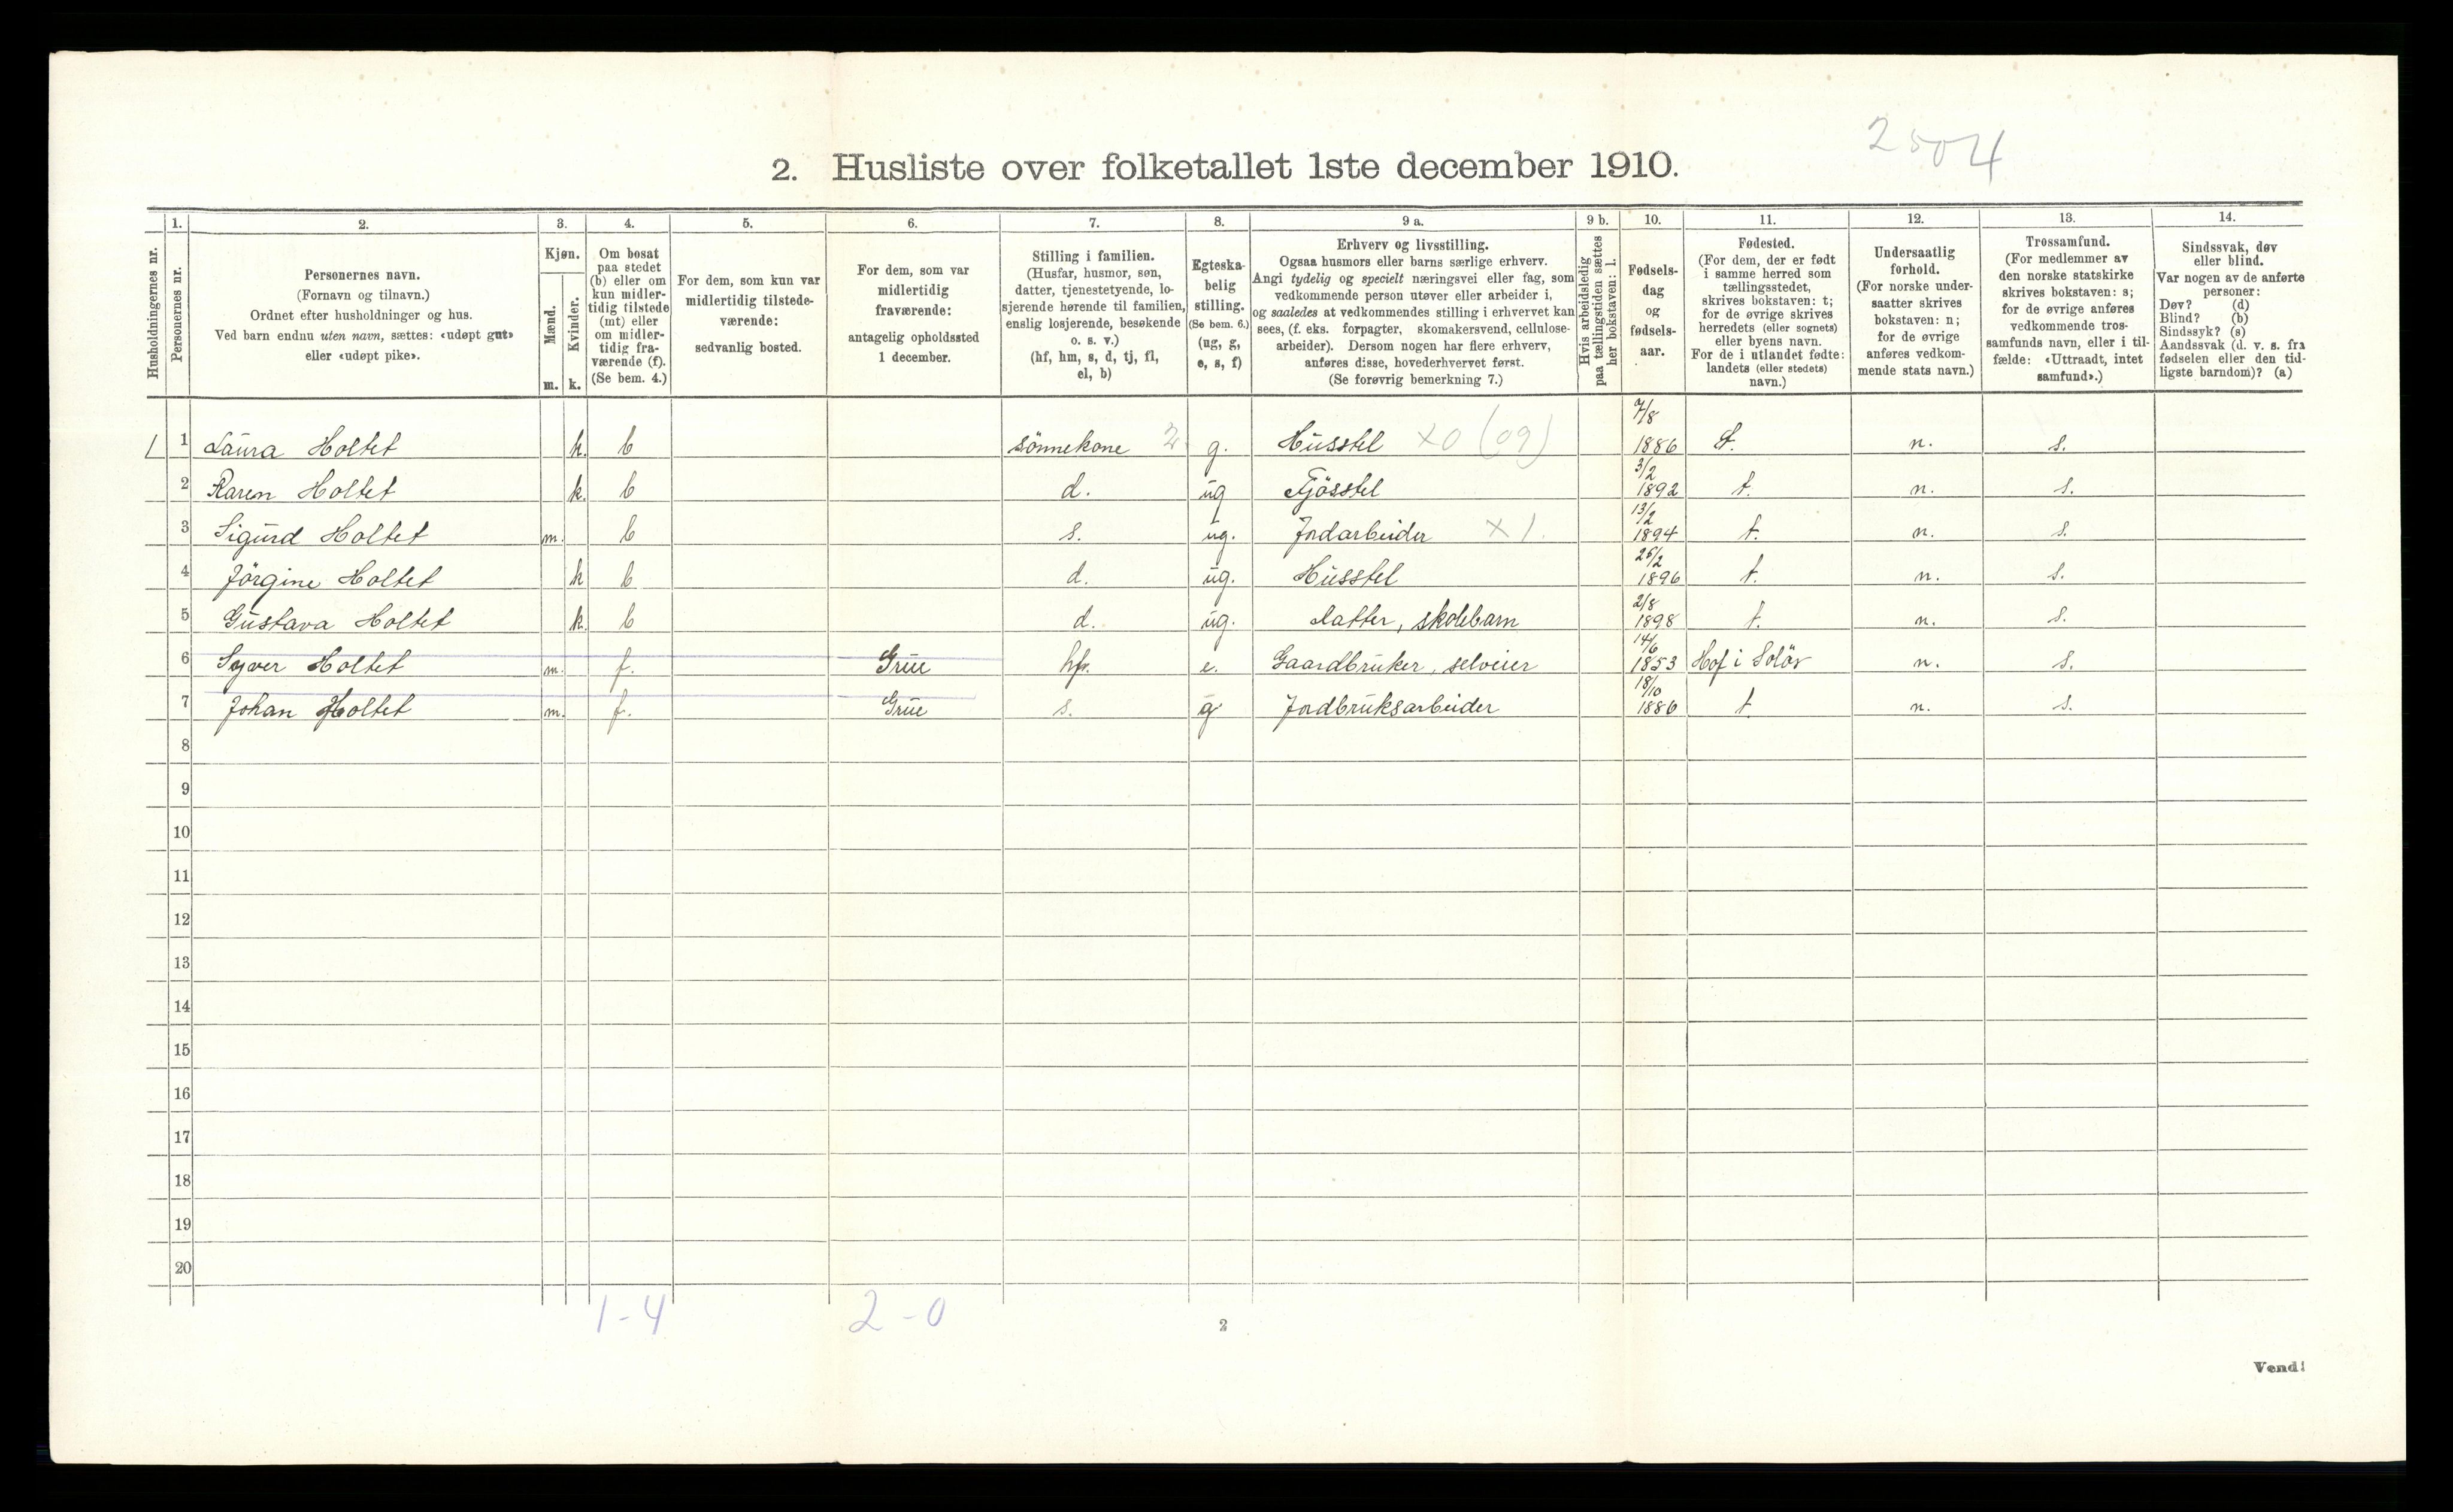 2504
2. Husliste over folketallet 1ste december 1910.
Husholdningernes nr.
1.
Personernes nr.
2.
Personernes navn.
(Fornavn og tilnavn.)
Ordnet efter husholdninger og hus.
Ved barn endnu uten navn, sættes: «udøpt gut»
eller «udøpt pike».
3.
Kjøn.
Mænd.
m.
Kvinder.
k.
4.
Om bosat
paa stedet
(b) eller om
kun midler-
tidig tilstede
(mt) eller
om midler-
tidig fra-
værende (f).
(Se bem. 4.)
5.
For dem, som kun var
midlertidig tilstede-
værende:
sedvanlig bosted.
6.
For dem, som var
midlertidig
fraværende:
antagelig opholdssted
1 december.
7.
Stilling i familien.
(Husfar, husmor, søn,
datter, tjenestetyende, lo-
sjerende hørende til familien,
enslig losjerende, besøkende
o. s. v.)
(hf, hm, s, d, tj, fl,
el, b)
8.
Egteska-
belig
stilling.
(Se bem. 6.)
(ug, g,
e, s, f)
9 a.
Erhverv og livsstilling.
Ogsaa husmors eller barns særlige erhverv.
Angi tydelig og specielt næringsvei eller fag, som
vedkommende person utøver eller arbeider i,
og saaledes at vedkommendes stilling i erhvervet kan
sees, (f. eks. forpagter, skomakersvend, cellulose-
arbeider). Dersom nogen har flere erhverv,
anføres disse, hovederhvervet først.
(Se forøvrig bemerkning 7.)
9 b.
Hvis arbeidsledig
paa tællingstiden sættes
her bokstaven: l.
10.
Fødsels-
dag
og
fødsels-
aar.
11.
Fødested.
(For dem, der er født
i samme herred som
tællingsstedet,
skrives bokstaven: t;
for de øvrige skrives
herredets (eller sognets)
eller byens navn.
For de i utlandet fødte:
landets (eller stedets)
navn.)
12.
Undersaatlig
forhold.
(For norske under-
saatter skrives
bokstaven: n;
for de øvrige
anføres vedkom-
mende stats navn.)
13.
Trossamfund.
(For medlemmer av
den norske statskirke
skrives bokstaven: s;
for de øvrige anføres
vedkommende tros-
samfunds navn, eller i til-
fælde: «Uttraadt, intet
samfund».)
14.
Sindssvak, døv
eller blind.
Var nogen av de anførte
personer:
Døv? (d)
Blind? (b)
Sindssyk? (s)
Aandssvak (d. v. s. fra
fødselen eller den tid-
ligste barndom)? (a)
1 1 Laura Holtet k. b sönnekone 2 g. Husstel x0 (09) 7/8 1886 t. n. s.
2 Karen Holtet k. b d. ug Fjösstel 3/2 1892 t. n. s.
3 Sigurd Holtet m. b s. ug. Jordarbeider x 1. 13/2 1894 t. n. s.
4 Jörgine Holtet k b d. ug. Husstel 26/2 1896 t. n. s.
5 Gustava Holtet k. b d. ug. datter, skolebarn 2/8 1898 t. n. s.
6 Syver Holtet m. f. Grue hf. e. Gaardbruker, selveier 14/6 1853 Hof i Solör n. s.
7 Johan Holtet m. f. Grue s. g Jordbruksarbeider 18/10 1886 t. n. s.
8
9
10
11
12
13
14
15
16
17
18
19
20
1-4 2-0
2
Vend!